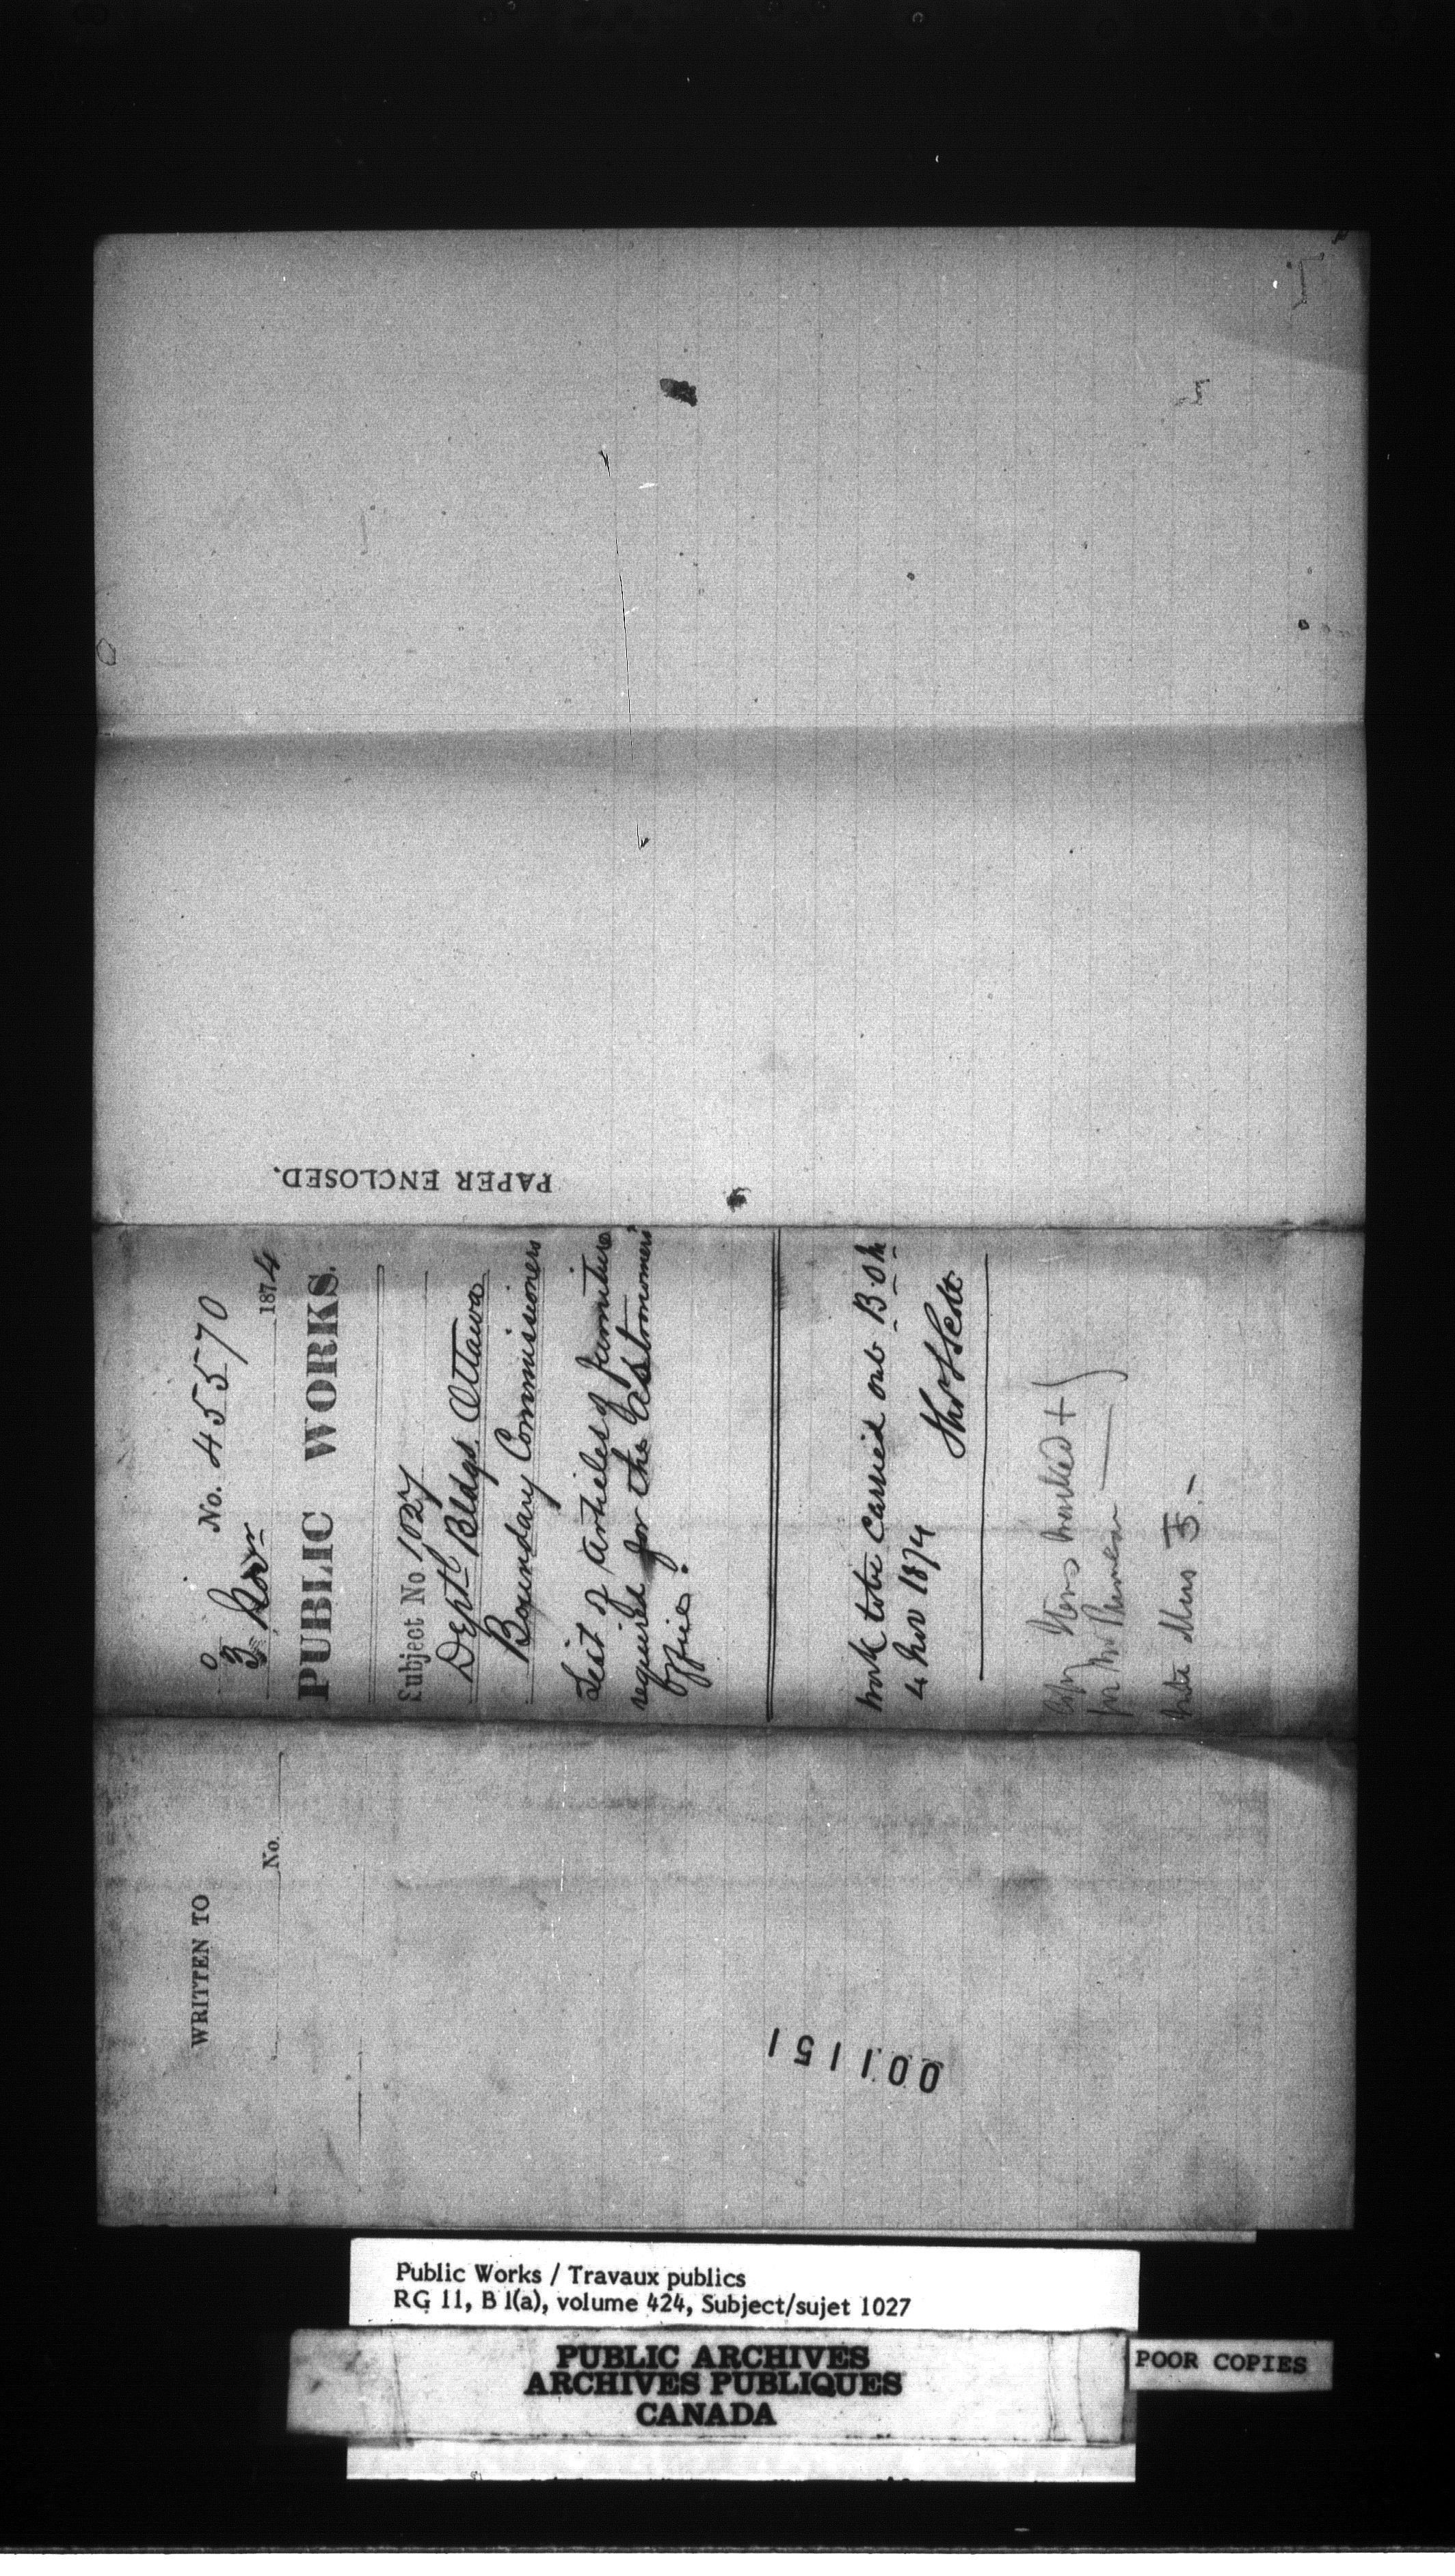 No. 45570
3 Novr 1874
PUBLIC WORKS.
Subject No 1027
Deptl Bldgs. Ottawa
Boundary Commissioners
List of articles of furniture
required for the Astronomers'
office.
Work to be carried out B.O.M.
4 Nov 1874
Thos S Scott
Copy Items marked +
for Mr
PAPER ENCLOSED.
WRITTEN TO
No.
001151
Public Works / Travaux publics
RG 11, B 1(a), volume 424, Subject/sujet 1027
PUBLIC ARCHIVES
ARCHIVES PUBLIQUES
CANADA
POOR COPIES